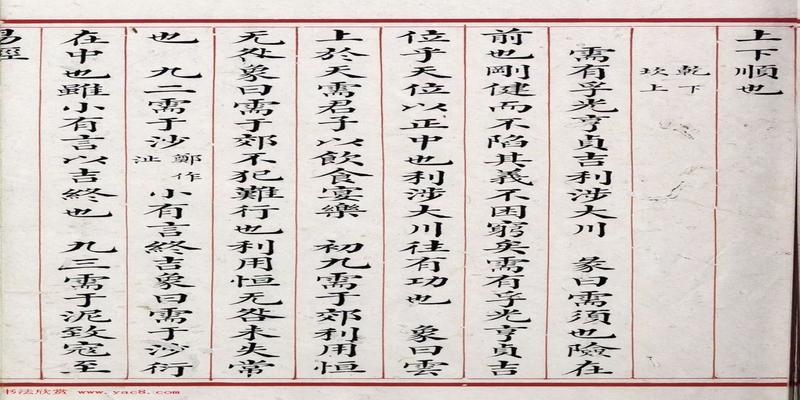 上下順也
乾下
坎上
需有孚光亨貞吉利涉大川　彖曰需須也險在
前也剛健而不陷其義不困窮矣需有孚光亨貞吉
位乎天位以正中也利涉大川往有功也　象曰雲
上於天需君子以飲食宴樂　初九需于郊利用恒
无咎象曰需于郊不犯難行也利用恒无咎未失常
也　九二需于沙鄭作沚小有言終吉象曰需于沙衍
在中也雖小有言以吉終也　九三需于泥致寇至
易經
书法欣赏 www.yac8.com